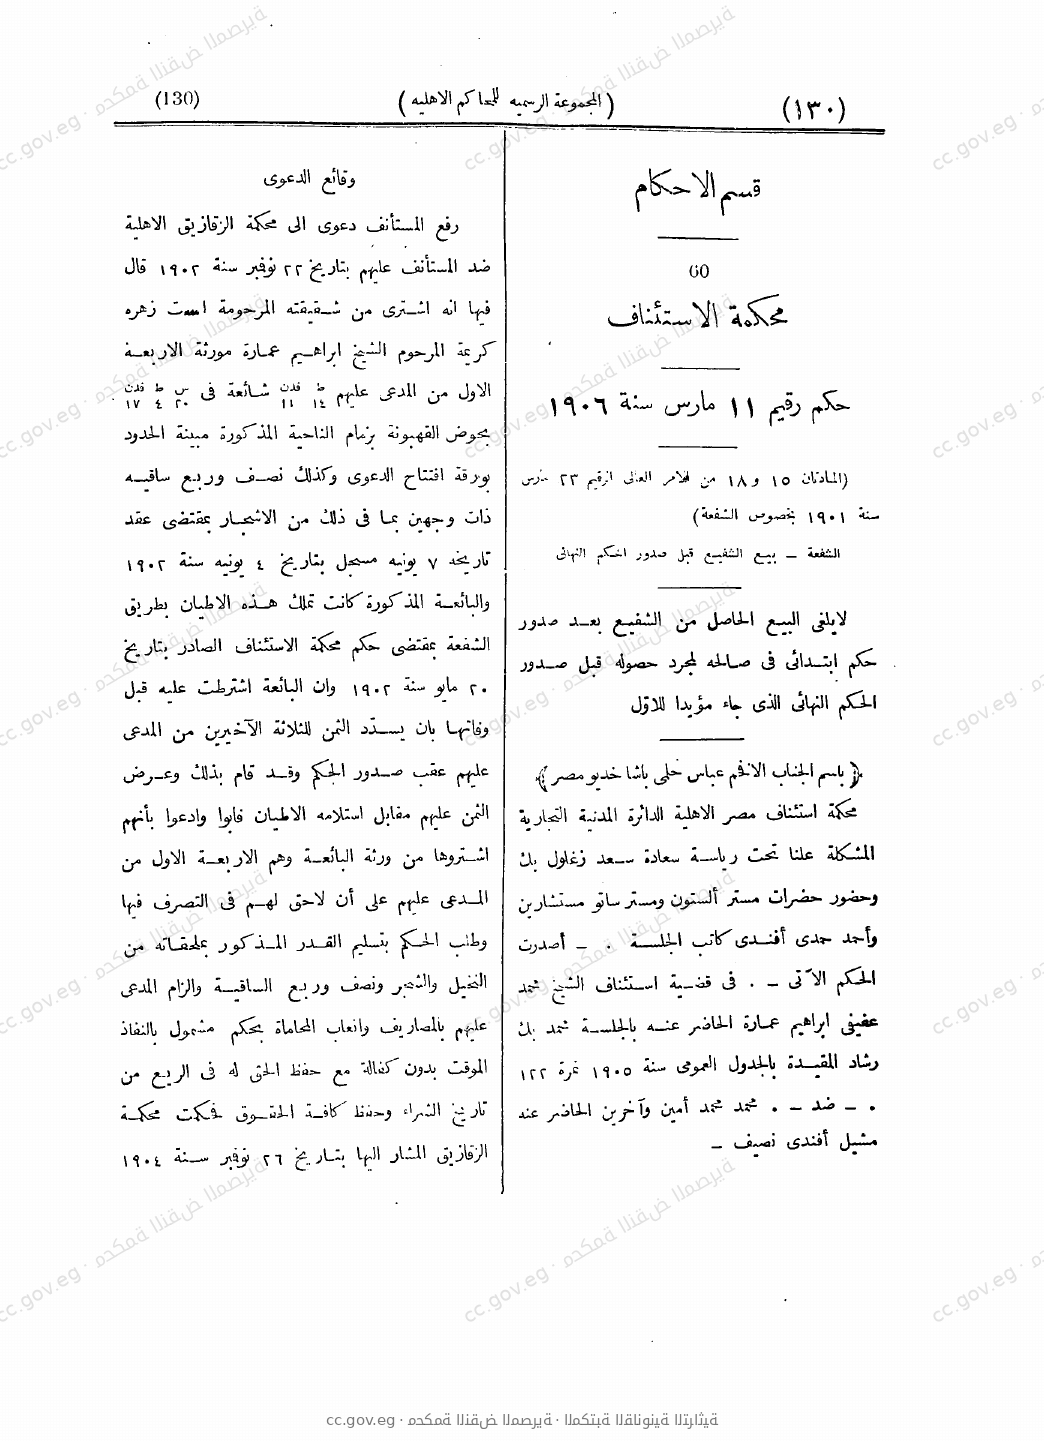 (١٣٠)
(المجموعة الرسميه للمحاكم الاهليه)
(130)
قسم الاحكام
60
محكمة الاستئناف
حكم رقيم ١١ مارس سنة ١٩٠٦
(المادتان ١٥ و١٨ من الامر العالى الرقيم ٢٣ مارس
سنة ١٩٠١ بخصوص الشفعة)
الشفعة ــ بيع الشفيع قبل صدور الحكم النهائى
لايلغى البيع الحاصل من الشفيع بعد صدور
حكم ابتدائى فى صالحه لمجرد حصوله قبل صدور
الحكم النهائى الذى جاء مؤيدا للاوّل
﴿باسم الجناب الافخم عباس حلمى باشا خديو مصر﴾
محكمة استئناف مصر الاهلية الدائرة المدنية التجارية
المشكلة علنا تحت رياسة سعادة سعد زغلول بك
وحضور حضرات مستر ألستون ومستر ساتو مستشارين
وأحمد حمدى أفندى كاتب الجلسة . ــ أصدرت
الحكم الآتى ــ . فى قضية استئناف الشيخ محمد
عفيفى ابراهيم عمارة الحاضر عنه بالجلسة محمد بك
رشاد المقيدة بالجدول العمومى سنة ١٩٠٥ نمرة ١٢٢
. ــ ضد ــ . محمد محمد أمين وآخرين الحاضر عنه
مشيل أفندى نصيف ــ
وقائع الدعوى
رفع المستأنف دعوى الى محكمة الزقازيق الاهلية
ضد المستأنف عليهم بتاريخ ٢٢ نوفبر سنة ١٩٠٢ قال
فيها انه اشترى من شقيقته المرحومة الست زهره
كريمة المرحوم الشيخ ابراهيم عمارة مورثة الاربعة
الاول من المدعى عليهم ط ١٤ فدن ١١ شائعة فى س ٢٠ ط ٤ فدن ١٧
بحوض القهبونة بزمام الناحية المذكورة مبينة الحدود
بورقة افتتاح الدعوى وكذلك نصف وربع ساقيه
ذات وجهين بما فى ذلك من الاشجار بمقتضى عقد
تاريخه ٧ يونيه مسجل بتاريخ ٤ يونيه سنة ١٩٠٢
والبائعة المذكورة كانت تملك هذه الاطيان بطريق
الشفعة بمقتضى حكم محكمة الاستئناف الصادر بتاريخ
٢٠ مايو سنة ١٩٠٢ وان البائعة اشترطت عليه قبل
وفاتها بان يسدّد الثمن للثلاثة الآخيرين من المدعى
عليهم عقب صدور الحكم وقد قام بذلك وعرض
الثمن عليهم مقابل استلامه الاطيان فابوا وادعوا بأنهم
اشتروها من ورثة البائعة وهم الاربعة الاول من
المدعى عليهم على أن لاحق لهم فى التصرف فيها
وطلب الحكم بتسليم القدر المذكور بملحقاته من
النخيل والشجر ونصف وربع الساقية والزام المدعى
عليهم بالمصاريف واتعاب المحاماة بحكم مشمول بالنفاذ
الموقت بدون كفالة مع حفظ الحق له فى الريع من
تاريخ الشراء وحفظ كافة الحقوق فحكمت محكمة
الزقازيق المشار اليها بتاريخ ٢٦ نوفبر سنة ١٩٠٤
cc.gov.eg · محكمة النقض المصرية · المكتبة القانونية التراثية